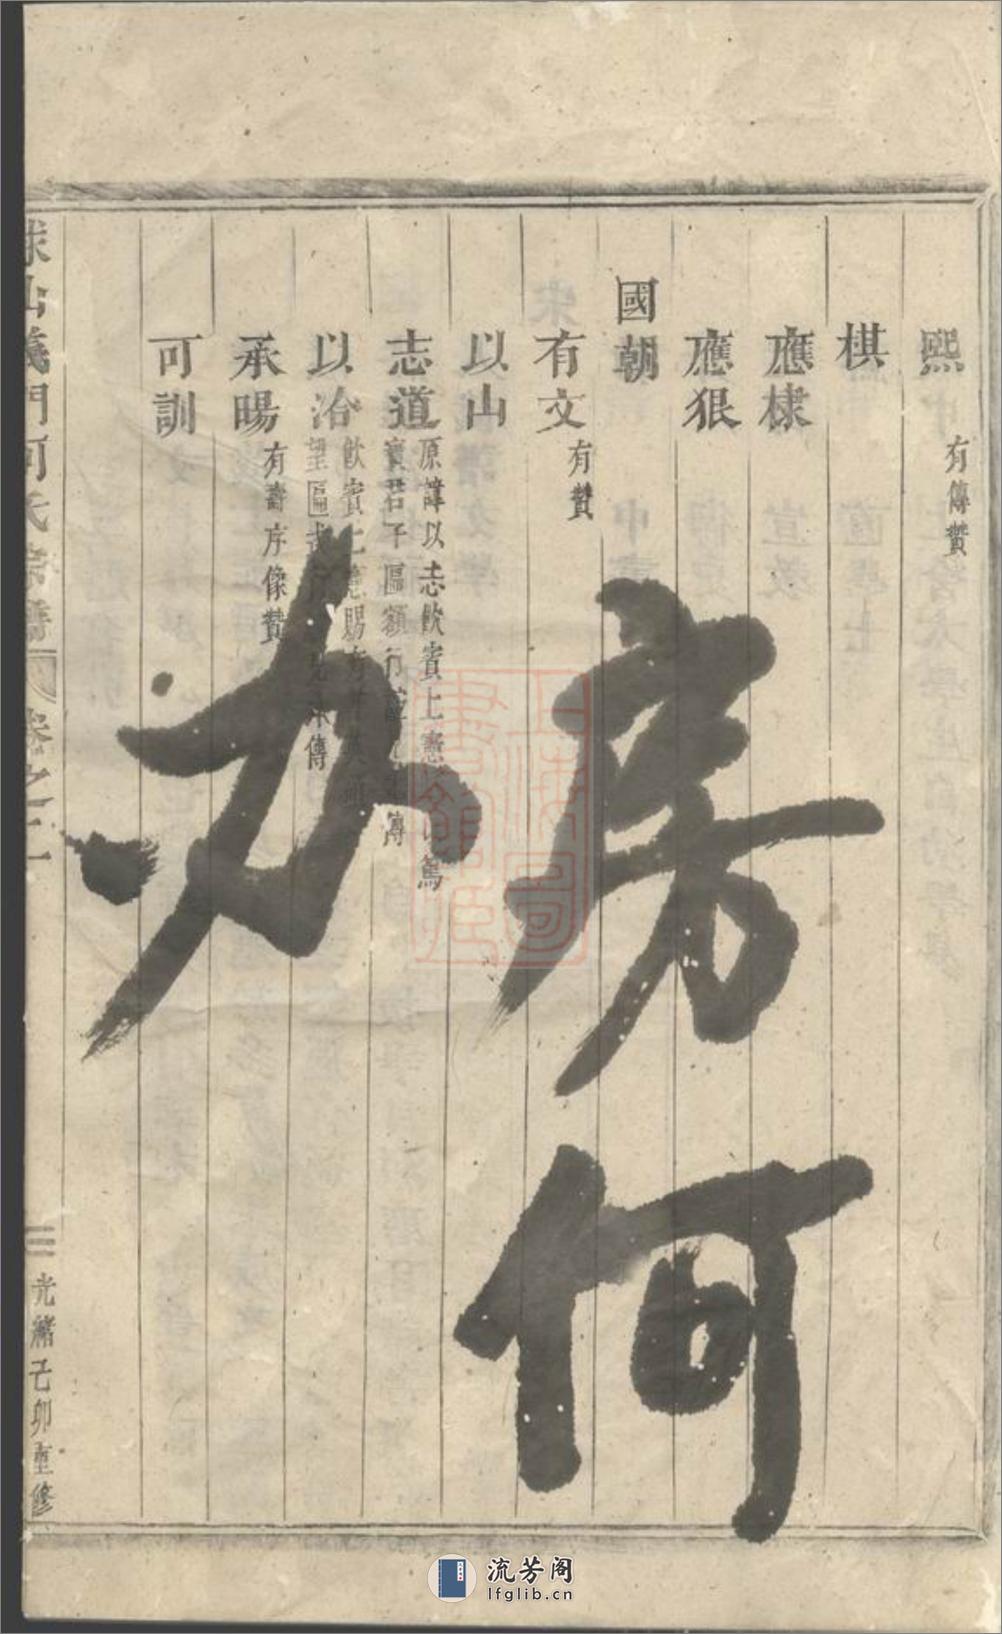 熙 有傳贊
棋
應棣
應狠
國朝
有文 有贊
以山
志道 原諱以志飲賓上憲
賓君子匾額行
以治 飲賓上憲賜
望匾 傳
承暘 有壽序像贊
可訓
義門何氏宗譜 卷之二
三 光緒己卯重修
房何
上海圖書館藏
流芳阁
lfglib.cn